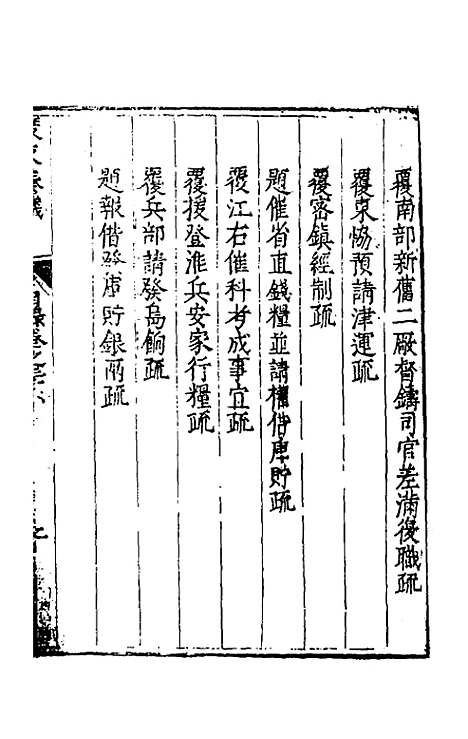 覆南部新舊二厰督鑄司官差滿復職疏
覆東恊預請津運疏
覆密鎮經制疏
題催省直錢糧並請權借庫貯疏
覆江右催科考成事宜疏
覆援登淮兵安家行糧疏
覆兵部請發島餉疏
題報借發庫貯銀兩疏